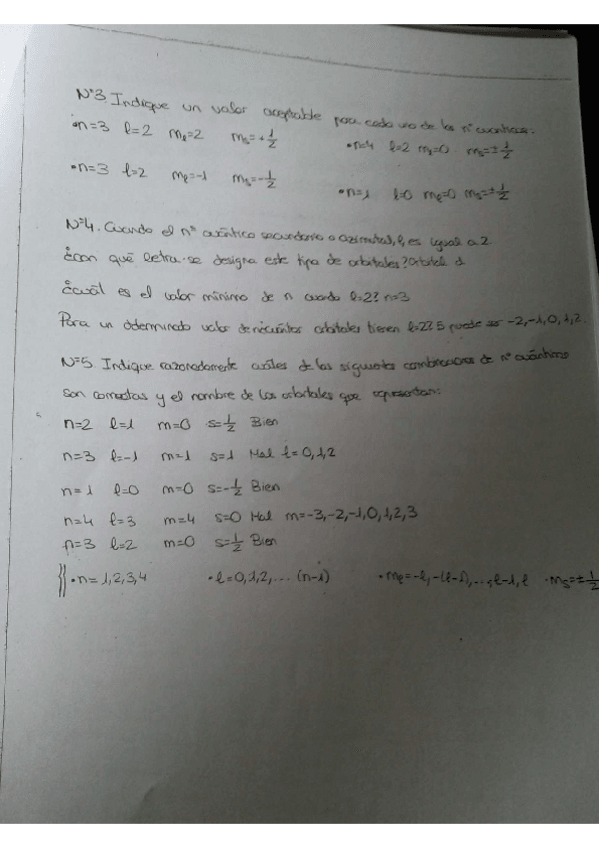 Nº3 Indique un valor aceptable para cada uno de los nº cuánticos:
•n=3 l=2 mₗ=2 mₛ=+1/2 •n=4 l=2 mₗ=0 mₛ=±1/2
•n=3 l=2 mₗ=-1 mₛ=-1/2 •n=1 l=0 mₗ=0 mₛ=±1/2
Nº4. Cuando el nº cuántico secundario o azimutal, l, es igual a 2
¿con qué letra se designa este tipo de orbitales? Orbital d
¿cuál es el valor mínimo de n cuando l=2? n=3
Para un determinado valor de n ¿cuántos orbitales tienen l=2? 5 puede ser -2,-1,0,1,2.
Nº5. Indique razonadamente cuáles de las siguientes combinaciones de nº cuánticos
son correctas y el nombre de los orbitales que representan:
n=2 l=1 m=0 s=1/2 Bien
n=3 l=-1 m=1 s=1 Mal l=0,1,2
n=1 l=0 m=0 s=-1/2 Bien
n=4 l=3 m=4 s=0 Mal m=-3,-2,-1,0,1,2,3
n=3 l=2 m=0 s=1/2 Bien
•n=1,2,3,4 •l=0,1,2,... (n-1) •mₗ=-l,-(l-1),...,l-1,l •mₛ=±1/2